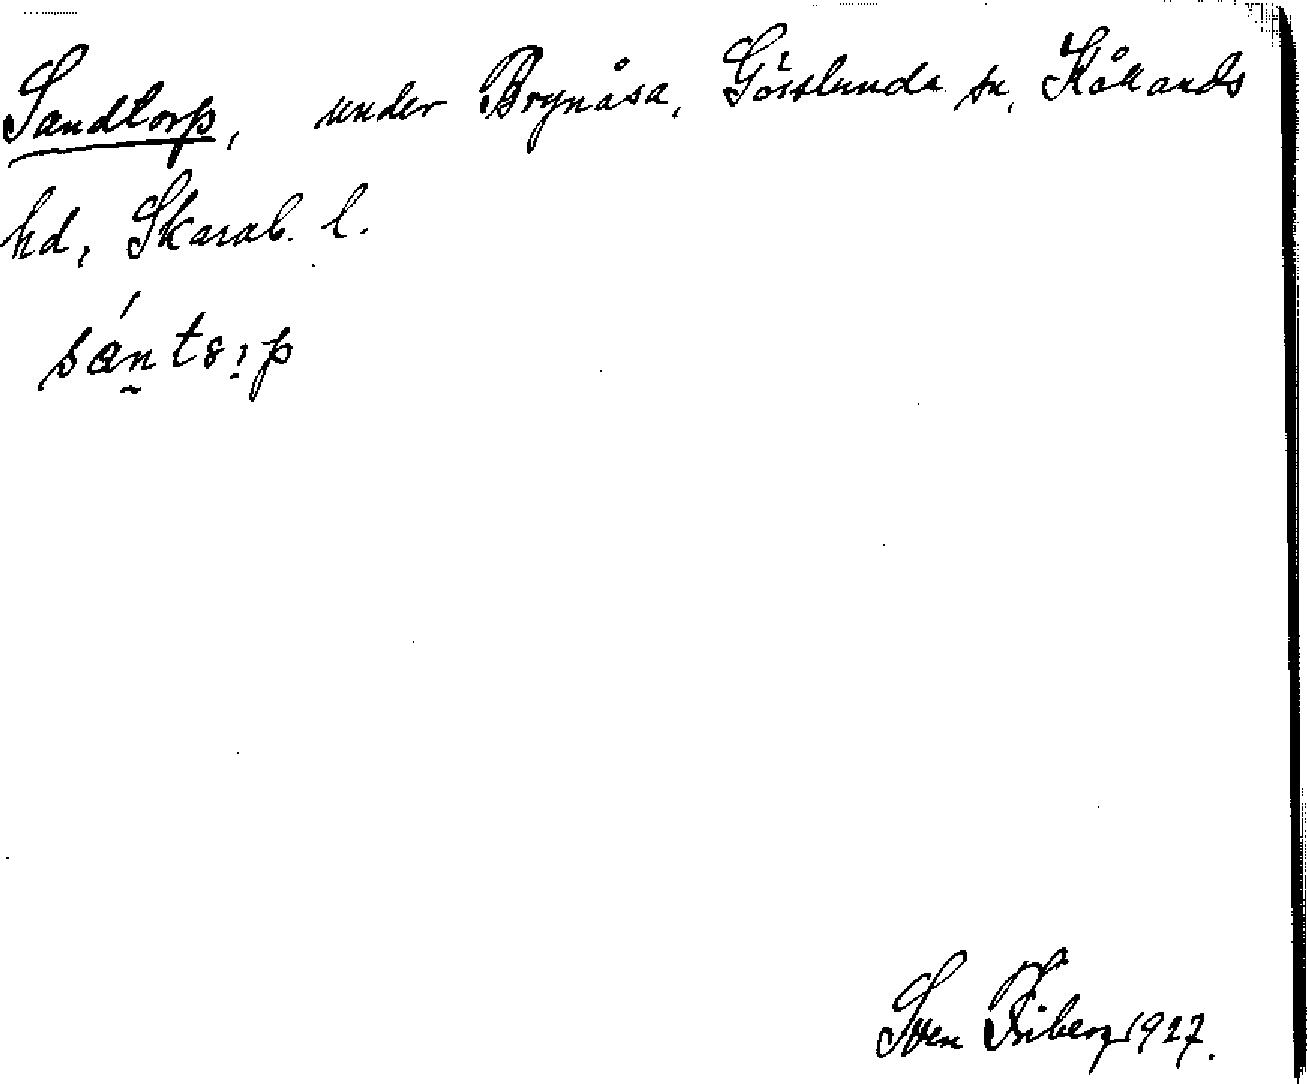 Sandtorp, under Brynåsa, Gösslunda sn, Kållands
hd, Skarab. l.
Sven Friberg 1927.